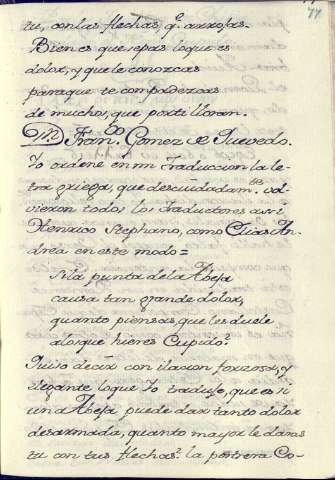 77
tu, con las flechas, q.e arrojas.
Bien es que sepas lo que es
dolor, y que le conozcas
para que te compadezcas
de muchos, que por ti lloran.
D.n Fran.co Gomez de Quevedo.
Yo ordené en mi Traduccion la le-
tra griega, que descuidadam.te vol-
vieron todos los Traductores assi
Henrico Stephano, como Elias An-
drea en este modo=
Si la punta de la Abeja
causa tan grande dolor,
quanto piensas que les duele
a los que hieres Cupido?
Quiso decir con ilacion forzosa, y
elegante lo que Yo traduje, que es si
una Abeja puede dar tanto dolor
desarmada, quanto mayor le daras
tu con tus flechas? la postrera Co-